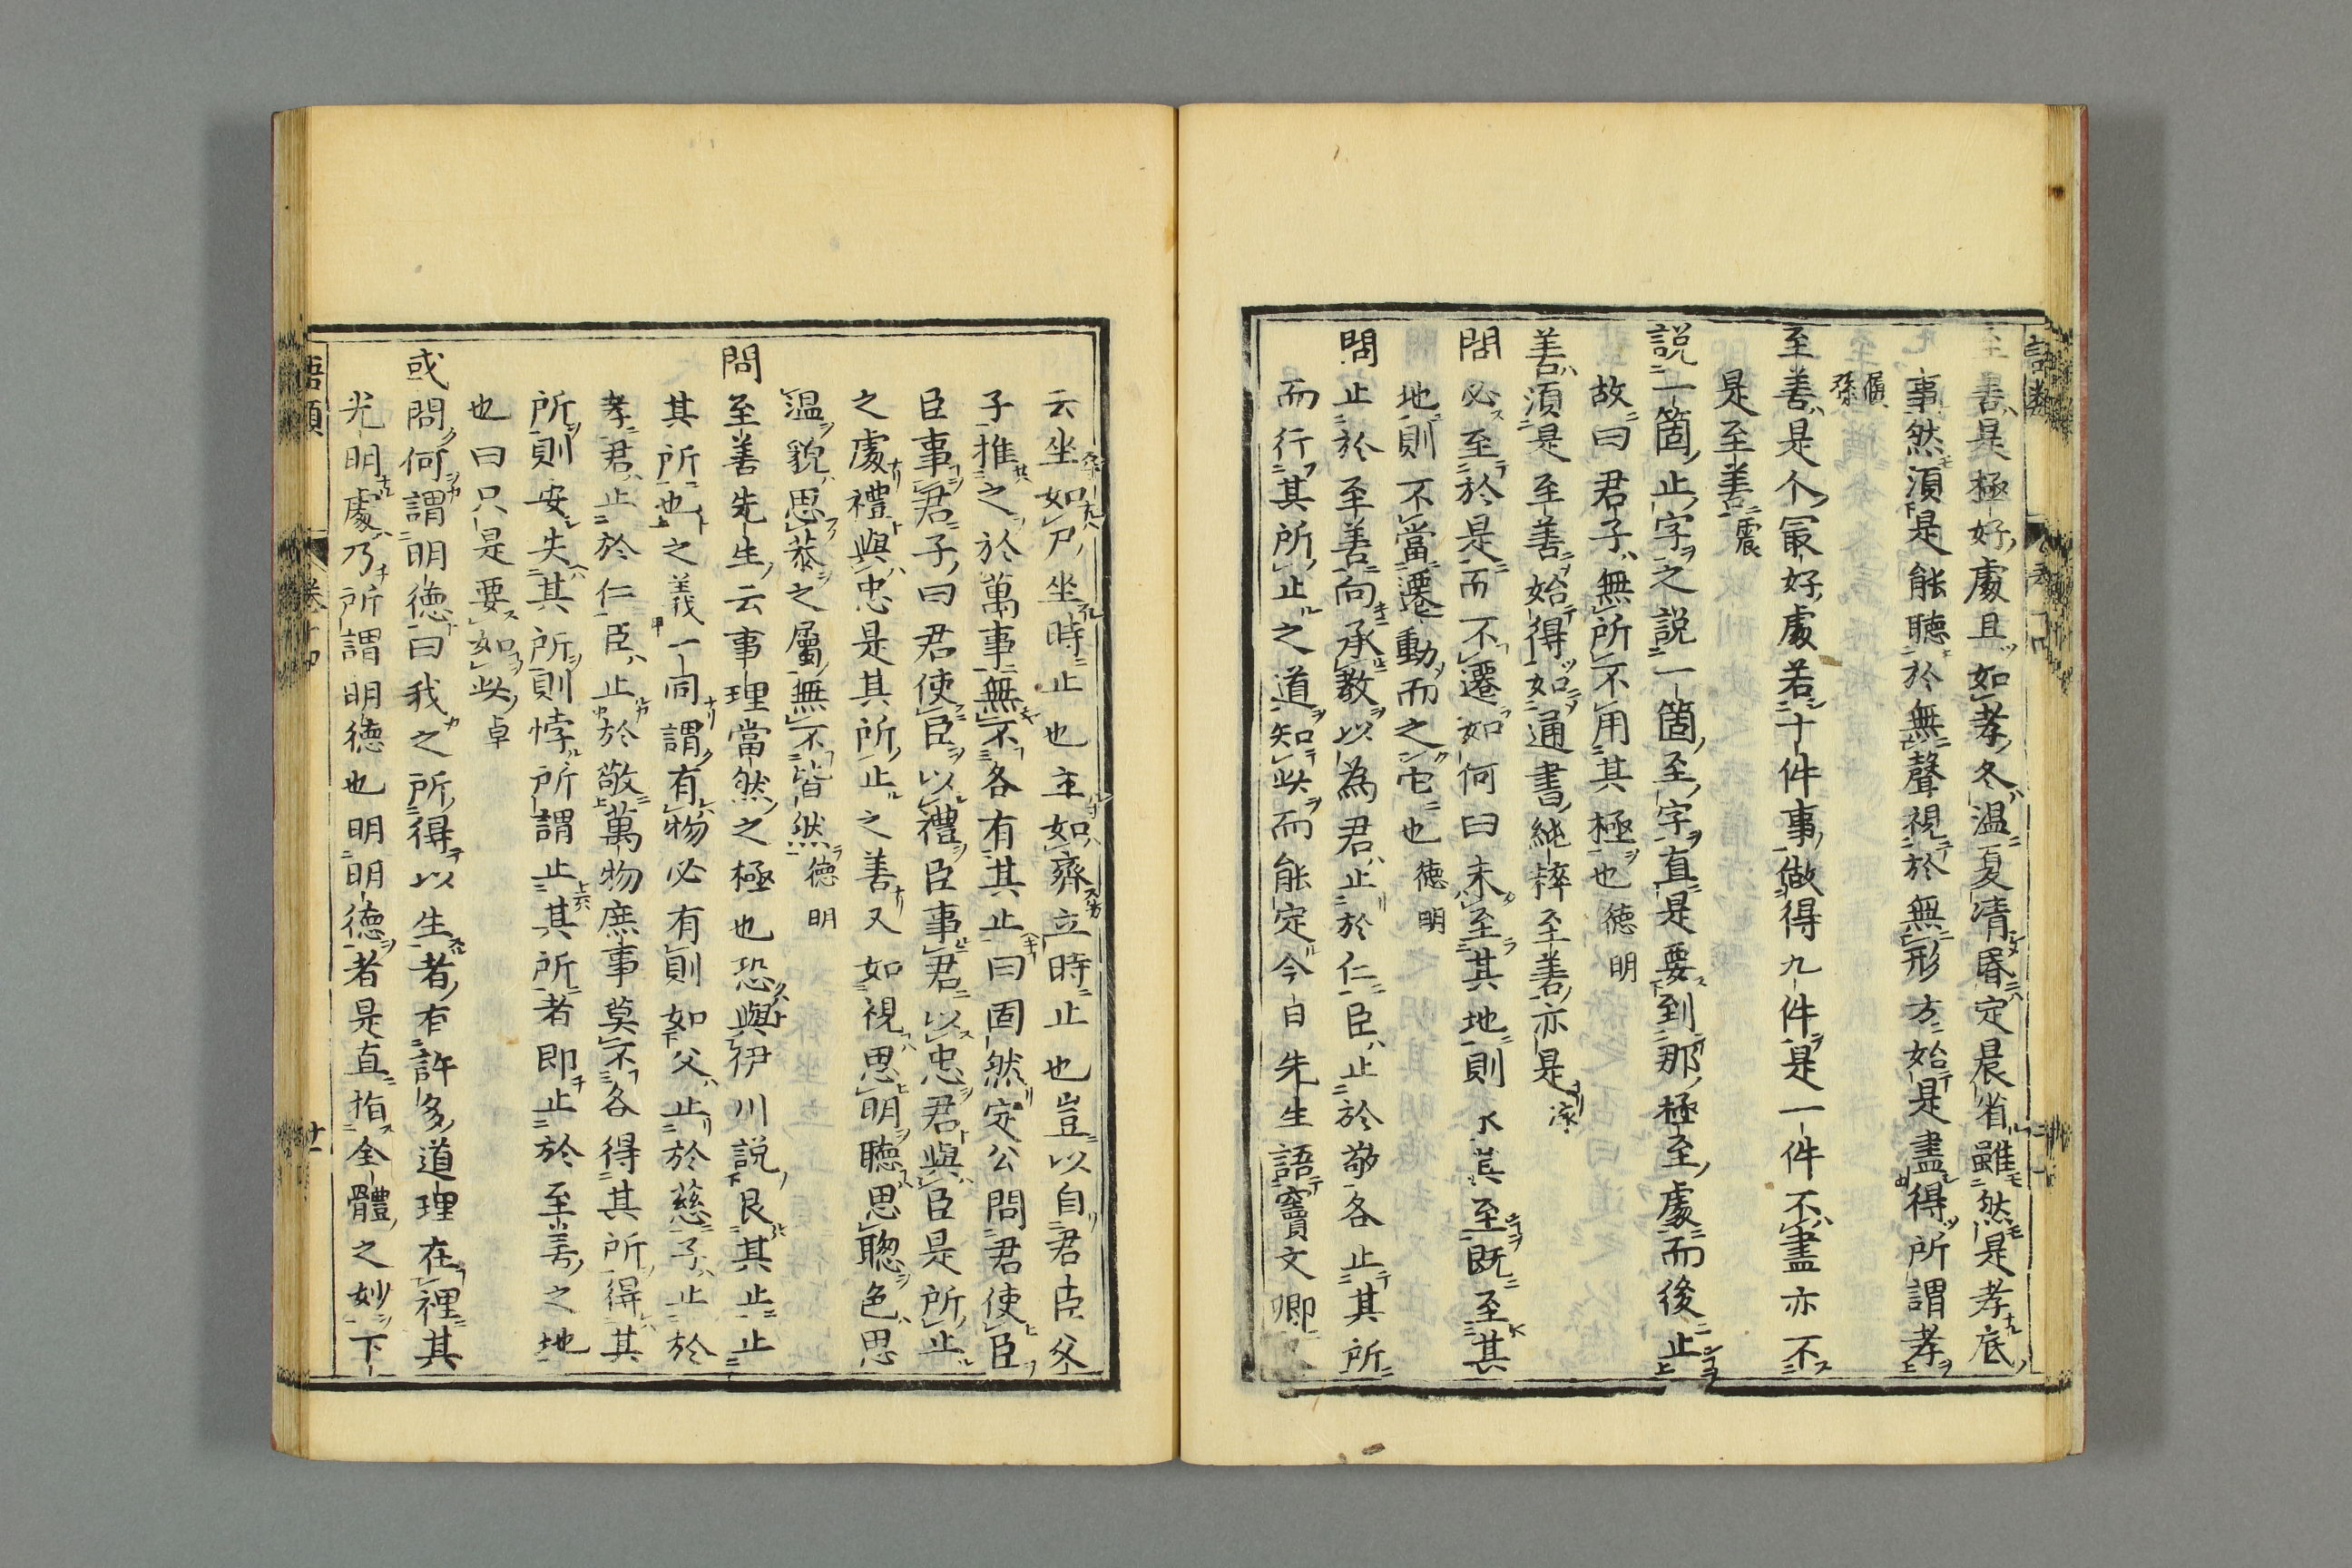 至善是極好處且如孝冬温夏凊昏定晨省雖然是孝底
事然須是能聽於無聲視於無形方始是盡得所謂孝
孫
至善是个最好處若十件事做得九件是一件不盡亦不
是至善震
説一箇止字之説一箇至字直是要到那極至處而後止
故曰君子無所不用其極也德明
善須是至善始得如通書純粹至善亦是
問必至於是而不遷如何曰未至其地則求其至既至其
地則不當遷動而之它也德明
問止於至善向承教以為君止於仁臣止於敬各止其所
而行其所止之道知此而能定今日先生語竇文卿
云坐如尸坐時止也立如齊立時止也豈以自君臣父
子推之於萬事無不各有其止曰固然定公問君使臣
臣事君子曰君使臣以禮臣事君以忠君與臣是所止
之處禮與忠是其所止之善又如視思明聽思聰色思
温貌思恭之屬無不皆然德明
問至善先生云事理當然之極也恐與伊川説艮其止止
其所也之義一同謂有物必有則如父止於慈子止於
孝君止於仁臣止於敬萬物庶事莫不各得其所得其
所則安失其所則悖所謂止其所者即止於至善之地
也曰只是要如此卓
或問何謂明德曰我之所得以生者有許多道理在裡其
光明處乃所謂明德也明明德者是直指全體之妙下
語類
卷十四
廿